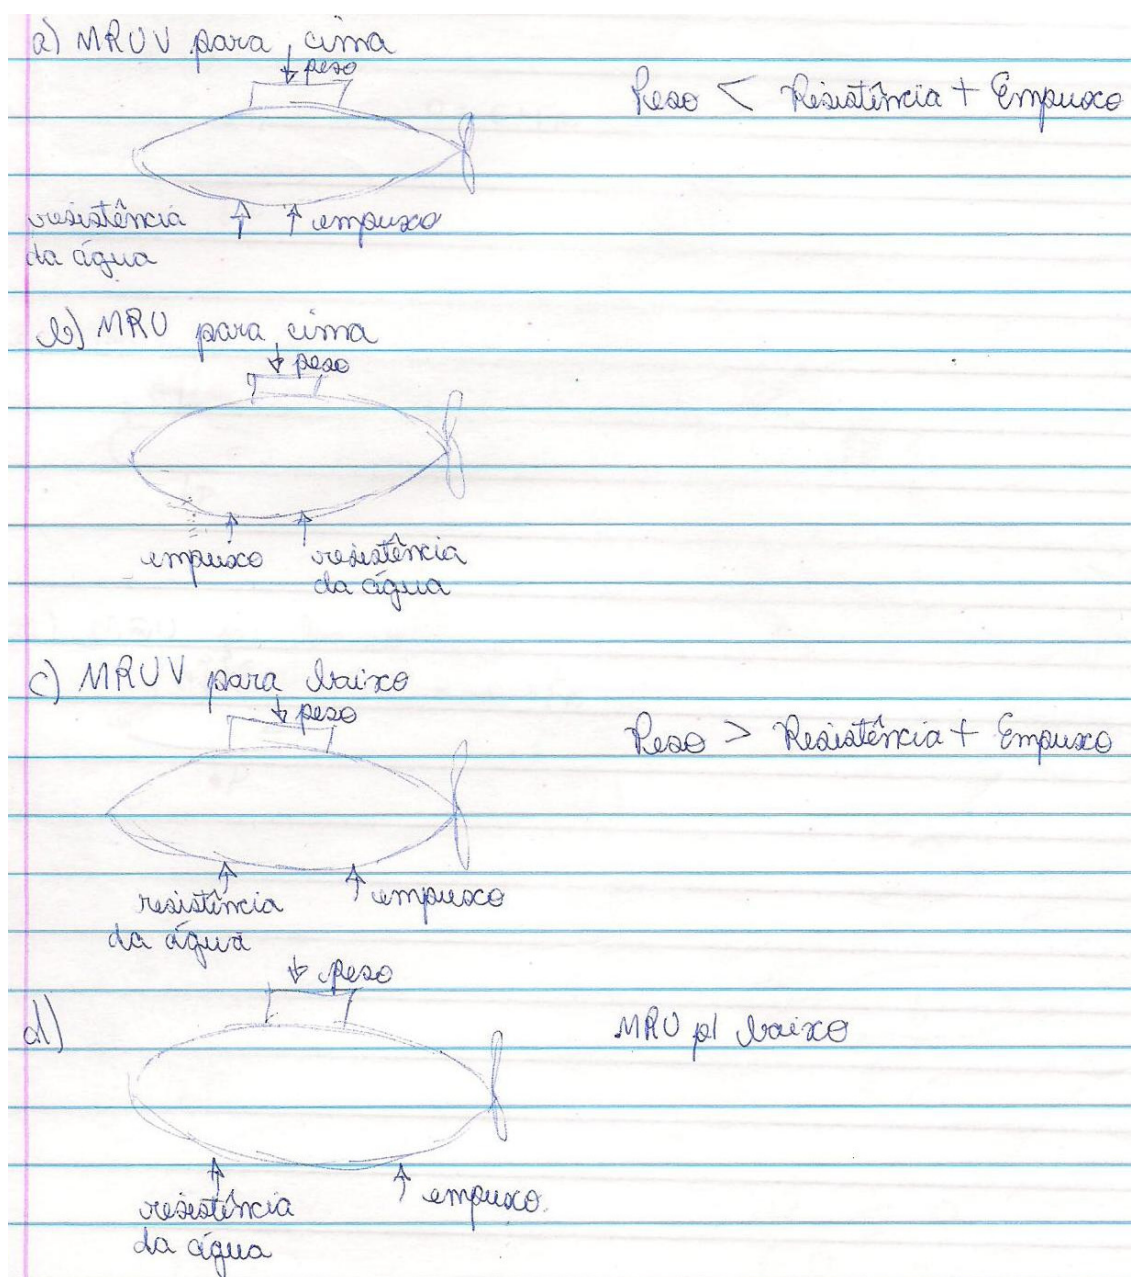 a) MRUV para cima
peso
Peso < Resistência + Empuxo
resistência
da água
empuxo
b) MRU para cima
peso
empuxo
resistência
da água
c) MRUV para baixo
peso
Peso > Resistência + Empuxo
resistência
da água
empuxo
peso
d)
MRU p/ baixo
resistência
da água
empuxo.